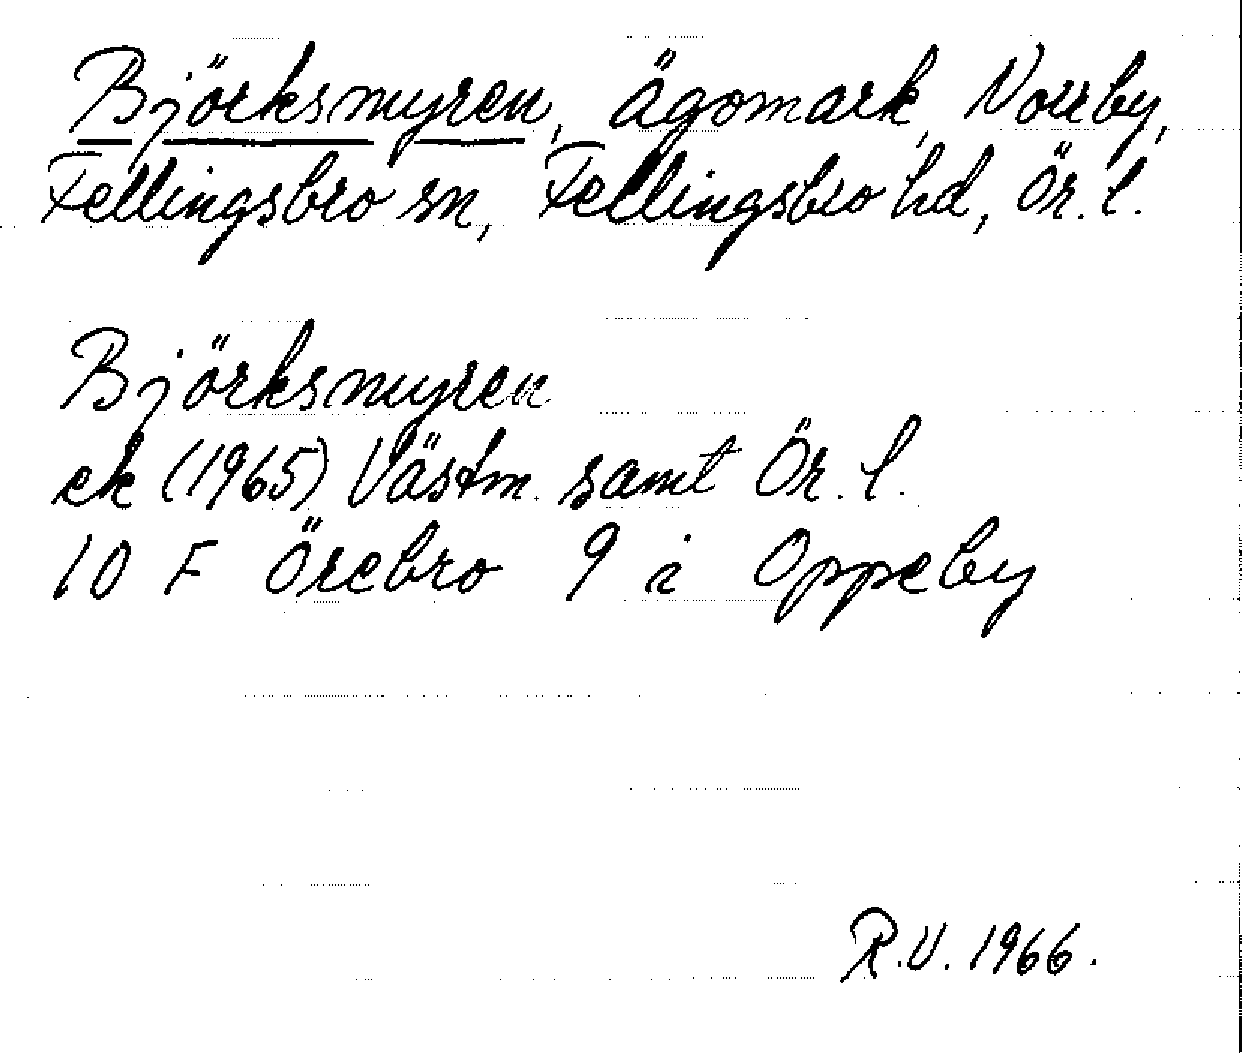 Björksmyren, ägomark, Norrby,
Fellingsbro sn, Fellingsbro hd, Ör. l.
Björksmyren
ek (1965) Västm. samt Ör. l.
10 F Örebro 9 i Oppeby
R.V. 1966.